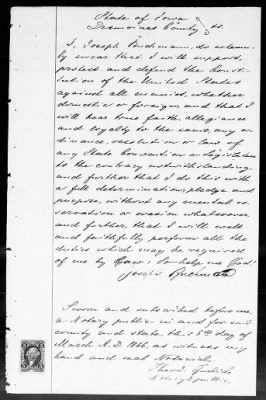 State of Iowa
Desmoines County } ss.
I, Joseph               do solemn-
ly swear that I will support,
protect and defend the Consti-
tution of the United States
against all enemies, whether
domestic or foreign and that I
will bear true faith, allegiance
and loyalty to the same, any or-
dinance, resolution or law of
any State Convention or Legislature
to the contrary notwithstanding,
and further that I do this with
a full determination, pledge and
purpose, without any mental re-
servation or evasion whatsoever,
and further, that I will well
and faithfully perform all the
duties which may be required
of me by Law: So help me God!
Joseph
Sworn and subscribed before me
a Notary public in and for said
county and state, this 5th day of
March A.D. 1866, as witness my
hand and seal Notarial.
Notary public